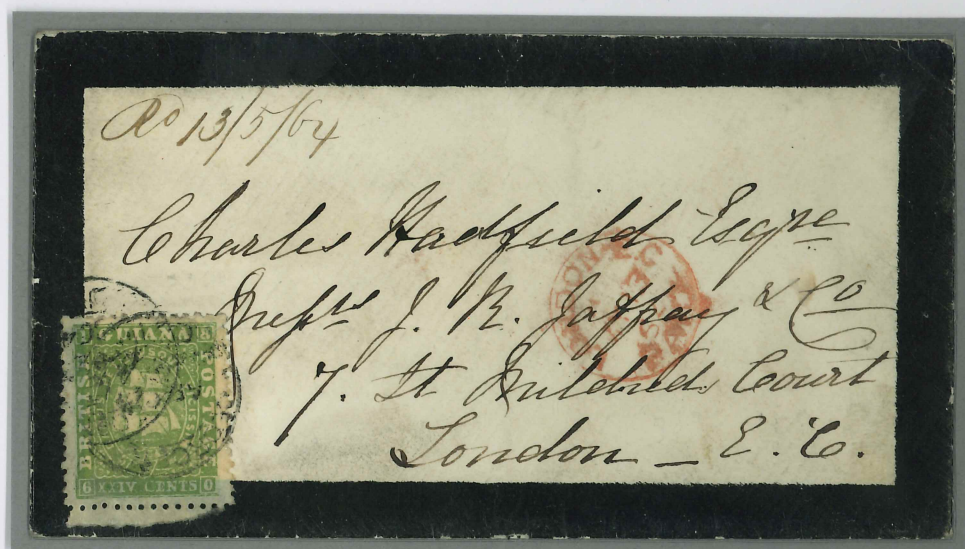 Rd 13/5/64
Charles Hadfield Esqre
Messrs J. R. Jaffray & Co
7. St Mildreds Court
London _ E. C.
LONDON E.C
PAID
BRITISH GUIANA POSTAGE
6 XXIV CENTS 0